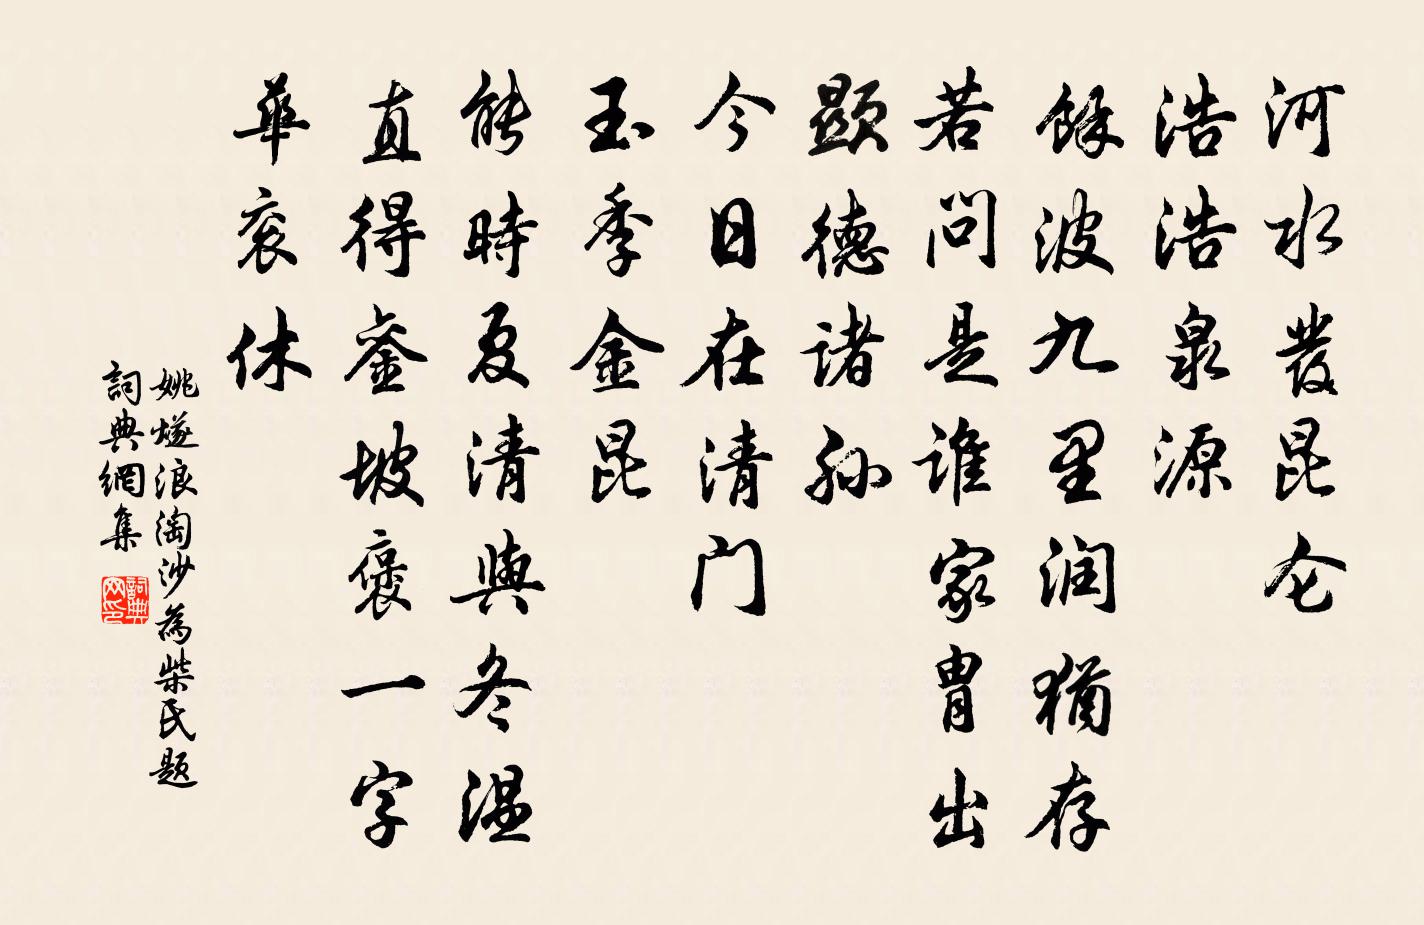 河水發昆仑
浩浩泉源
餘波九里润猶存
若问是谁家胄出
顯德诸孙
今日在清门
玉季金昆
能時夏清與冬温
直得銮坡褒一字
華衮休
姚燧浪淘沙為柴氏题
詞典網集
詞典网印